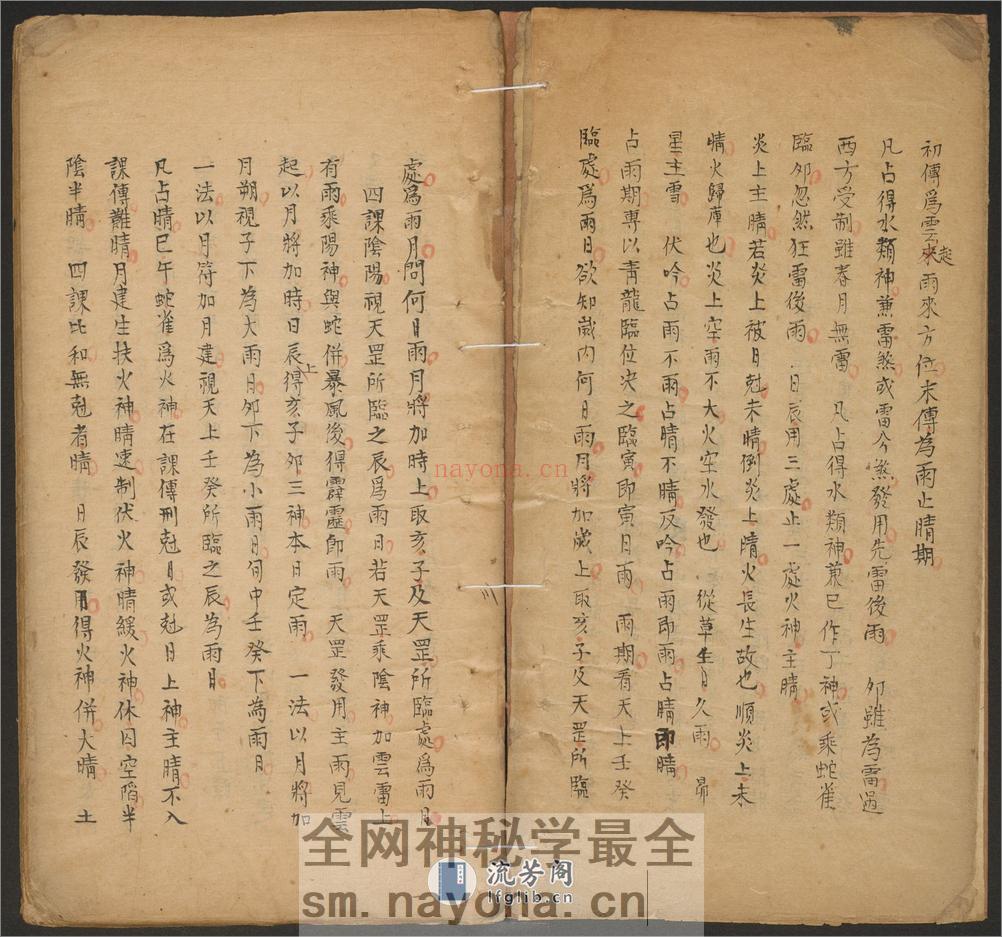 初傳爲雲來起雨來方位末傳為雨止晴期
凡占得水類神兼雷煞或雷今煞發用先雷後雨 夘雖為雷遇
西方受制雖春月無雷 凡占得水類神兼巳作丁神或乘蛇雀
臨夘忽然狂雷後雨 日辰用三處止一處火神主晴
炎上主晴若炎上被日尅未晴倒炎上晴火長生故也順炎上未
晴火歸庫也炎上空雨不大火空水發也 從草生月久雨 昴
星主雪 伏吟占雨不雨占晴不晴反吟占雨即雨占晴即晴
占雨期專以青龍臨位決之臨寅即寅日雨 雨期看天上壬癸
臨處爲雨日欲知歲内何日雨月將加歲上取亥子及天罡所臨
處爲雨月問何日雨月將加時上取亥子及天罡所臨處爲雨月
四課陰陽視天罡所臨之辰爲雨日若天罡乘陰神加雲雷上
有雨乘陽神與蛇併暴風後得霹靂即雨 天罡發用主雨見雲
起以月將加時日辰上得亥子夘三神本日定雨 一法以月將加
月朔視子下為大雨日夘下為小雨日旬中壬癸下為雨日
一法以月符加月建視天上壬癸所臨之辰為雨日
凡占晴巳午蛇雀爲火神在課傳刑尅日或尅日上神主晴不入
課傳難晴月建生扶火神晴速制伏火神晴緩火神休囚空陷半
陰半晴 四課比和無尅者晴 日辰發用得火神併大晴 土
nayona.cn
全网神秘学最全
流芳阁
lfglib.cn
sm.nayona.cn